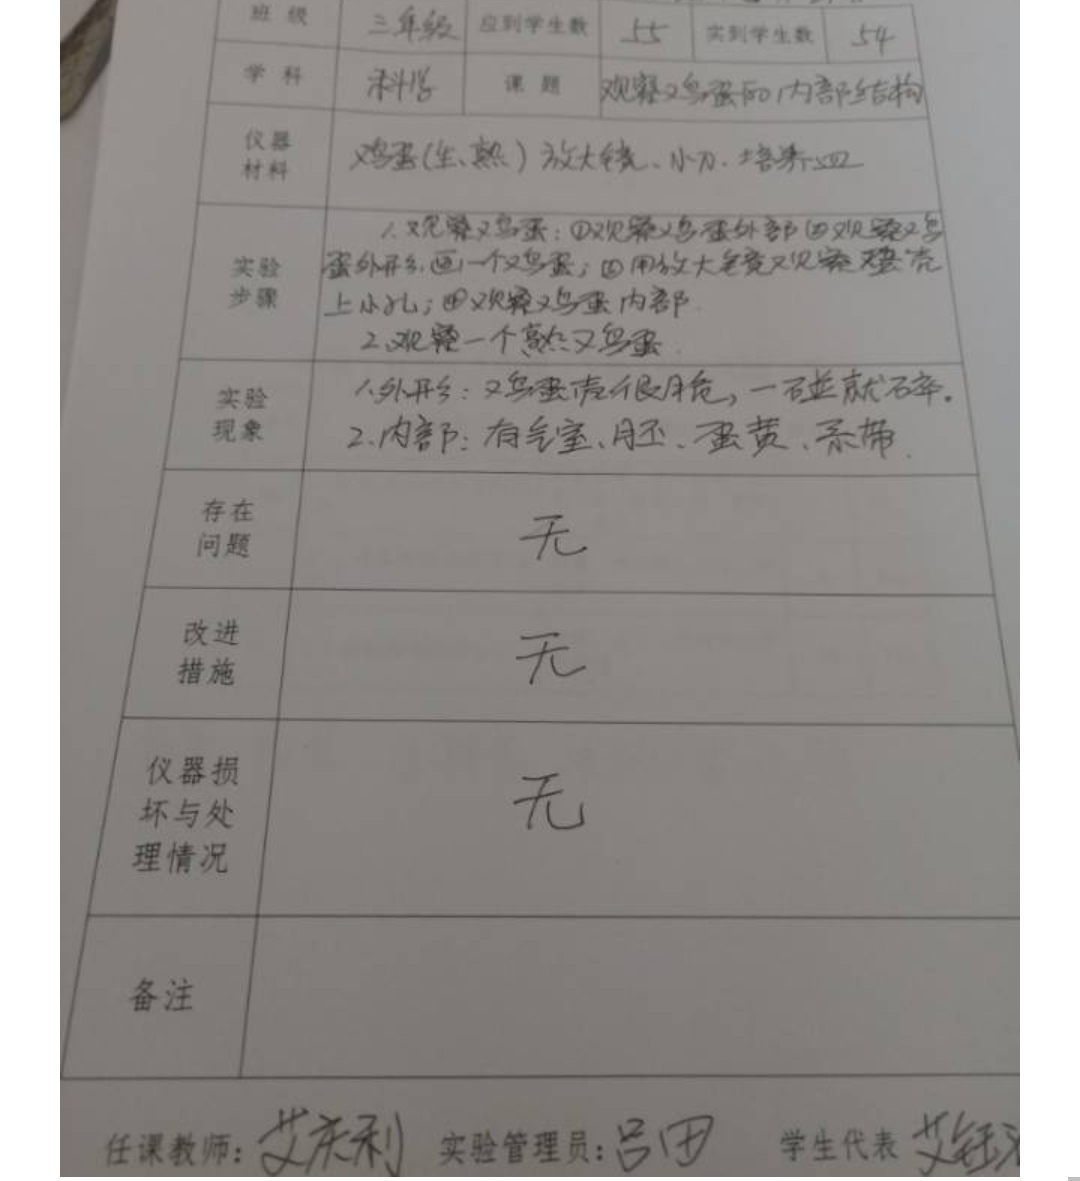 班级 三年级 应到学生数 55 实到学生数 54
学科 科学 课题 观察鸡蛋的内部结构
仪器
材料
鸡蛋(生、熟)放大镜、小刀、培养皿
实验
步骤
1.观察鸡蛋:①观察鸡蛋外部②观察鸡
蛋外形,画一个鸡蛋;③用放大镜观察蛋壳
上小孔;④观察鸡蛋内部.
2.观察一个熟鸡蛋.
实验
现象
1.外形:鸡蛋壳很脆,一碰就碎.
2.内部:有气室、胚、蛋黄、系带.
存在
问题
无
改进
措施
无
仪器损
坏与处
理情况
无
备注
任课教师:艾庆利 实验管理员:吕田 学生代表 艾钰